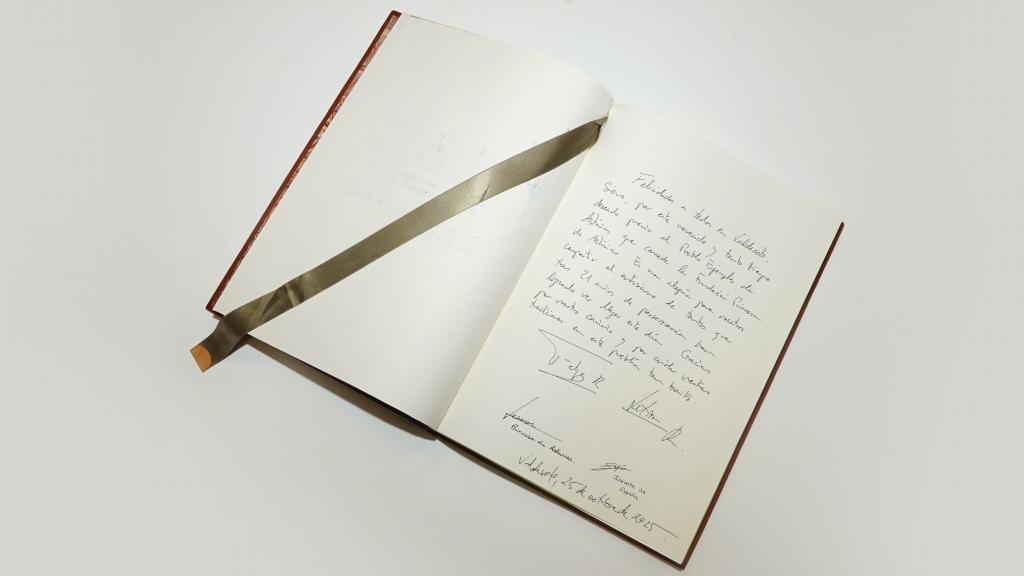 Felicidades a todos en Valdesoto.
Siero, por este merecido y tanto tiempo
deseado premio al Pueblo Ejemplar de
Asturias que concede la Fundación Princesa
de Asturias. Es una alegría para nosotros
compartir el entusiasmo de tantos que
tras 21 años de perseverancia han
logrado ver llegar este día. Gracias
por vuestro cariño y por cuidar vuestras
tradiciones en este pueblín tan bonito.
Felipe R
Letizia R.
Leonor
Princesa de Asturias
Sofía
Infanta de
España
Valdesoto, 25 de octubre de 2025.